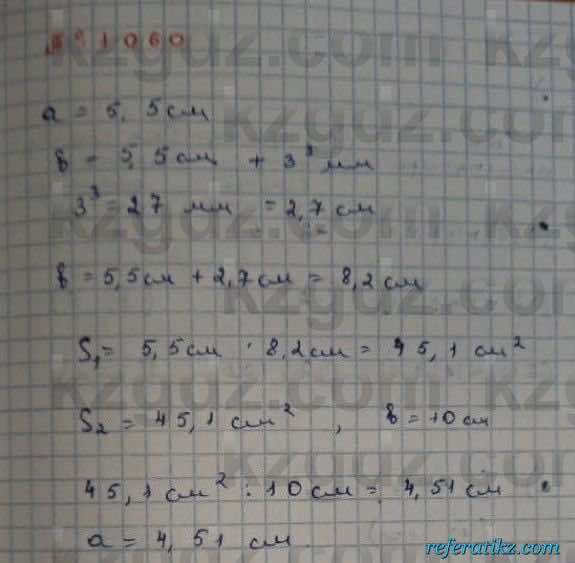 № 1060
kzgdz.com
a = 5,5 см
в = 5,5 см + 3³ мм
3³ = 27 мм = 2,7 см
в = 5,5 см + 2,7 см = 8,2 см
S₁ = 5,5 см · 8,2 см = 45,1 см²
S₂ = 45,1 см², в = 10 см
45,1 см² : 10 см = 4,51 см
a = 4,51 см
referatikz.com